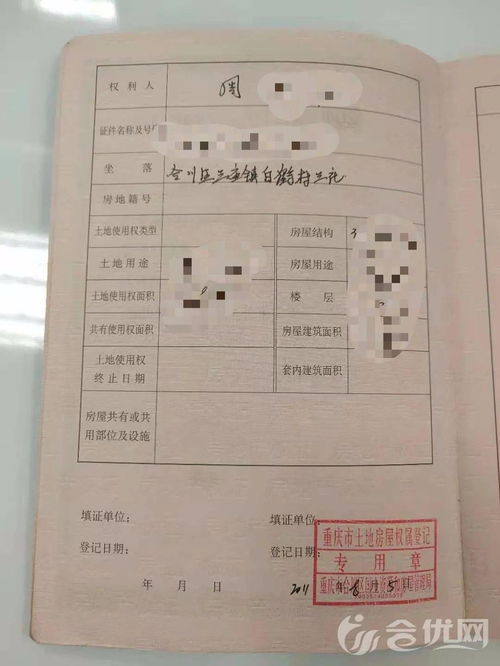 权利人 周
证件名称及号
坐落 合川区三庙镇白鹤村三社
房地籍号
土地使用权类型 房屋结构
土地用途 房屋用途
土地使用权面积 楼层
共有使用权面积 房屋建筑面积
土地使用权
终止日期 套内建筑面积
房屋共有或共
用部位及设施
填证单位: 填证单位:
登记日期: 登记日期:
年 月 日 2011 年 8 月 5 日
重庆市土地房屋权属登记
专用章
重庆市合川区国土资源和房屋管理局
合优网